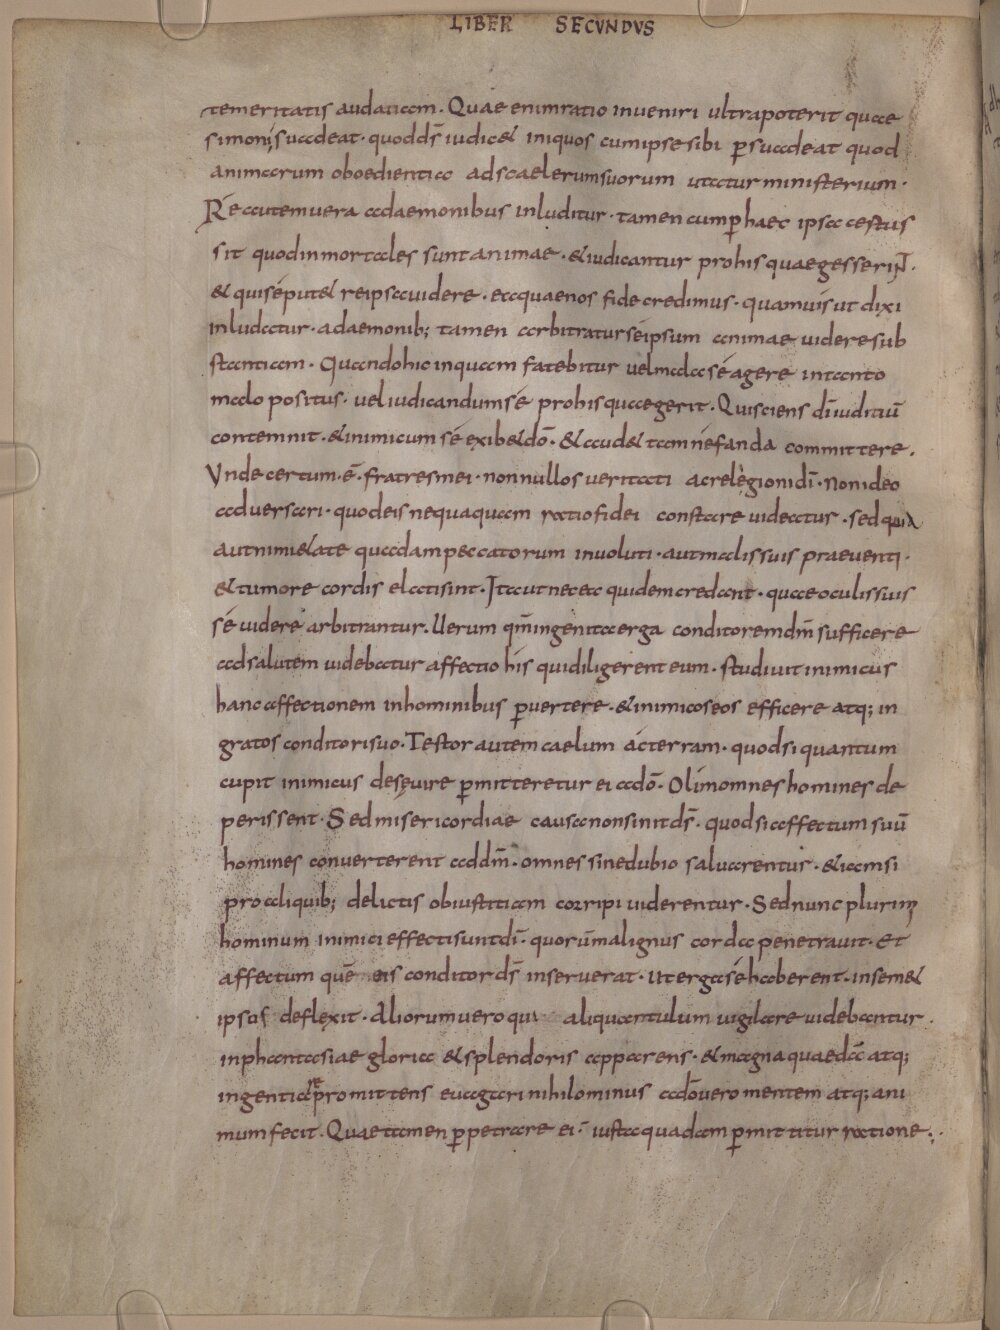 LIBER SECVNDVS
temeritatis audatiam. Quae enim ratio inveniri ultra poterit quae
simoni suadeat. quod ds̄ iudicet iniquos cum ipse sibi p̱suadeat quod
animarum oboedientia ad scaelerum suorum utatur ministerium.
Re autem vera a daemonibus inluditur. tamen cum p̱ haec ipsa cestus
sit quod inmortales sunt animae. & iudicantur pro his quae gesserint.
& qui sé putet re ipsa videre. ea quae nos fide credimus. quamvis ut dixi
inludatur. a daemonib; tamen arbitratur se ipsum animae videre sub
stantiam. Quando hic inquam fatebitur vel mala sé agere in tanto
malo positus. vel iudicandum sé pro his quae gerit. Qui sciens dī iuditiū
contemnit. & inimicum sé exibet dō. & audet tam nefanda committere.
Vnde certum. ē. fratres mei. non nullos veritati ac relegioni dī. non ideo
adversari. quod eis nequaquam ratio fidei constare videatur. sed quia
aut nimietate quadam peccatorum involuti. aut malis suis praeventi.
& tumore cordis elati sint. Ita ut nec ea quidem credant. quae oculis suis
sé videre arbitrantur. Verum qm̄ ingenita erga conditorem dm̄ sufficere
ad salutem videbatur affectio his qui diligerent eum. studuit inimicus
hanc affectionem in hominibus p̱vertere. & inimicos eos efficere atq; in
gratos conditori suo. Testor autem caelum ac terram. quod si quantum
cupit inimicus desęvire p̱mitteretur ei a dō. Olim omnes homines de
perissent. Sed misericordiae causa non sinit ds̄. quod si affectum suū
homines converterent ad dm̄. omnes sine dubio salvarentur. & iam si
pro aliquib; delictis ob iustitiam corripi viderentur. Sed nunc plurimi
hominum inimici effecti sunt dī. quorūm malignus corda penetravit. Et
affectum quē eis conditor ds̄ inserverat. ut erga sé haberent. in semet
ipsuſ deflexit. Aliorum vero qui aliquantulum vigilare videbantur.
in phantasiae gloria & splendoris apparens. & magna quaedā atq;
ingentia se promittens evagari nihilominus a dō vero mentem atq; ani
mum fecit. Quae tamen p̱petrare ei. iusta quadam p̱mittitur ratione;.